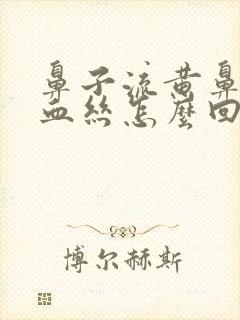 鼻子流黄鼻
血丝怎麽回
博尔赫斯